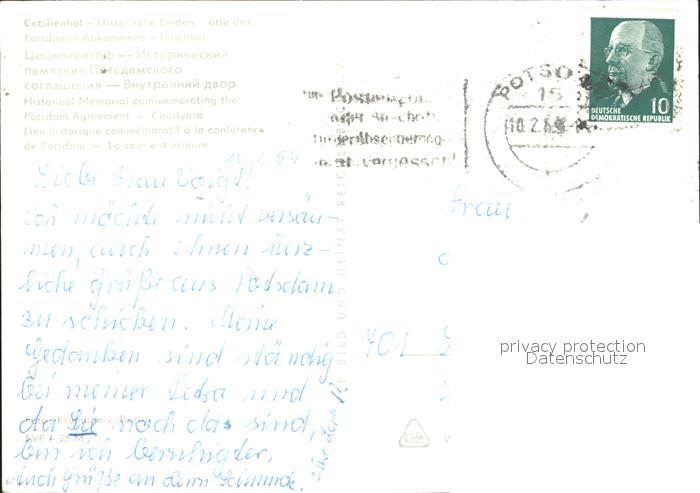 Cecilienhof – Historische Gedenkstätte des
Potsdamer Abkommens – Innenhof
Цецилиенгоф –– Исторический
памятник Потсдамского
соглашения — Внутренний двор
Historical Memorial commemorating the
Potsdam Agreement – Courtyard
Lieu historique commémoratif à la conférence
de Potsdam – La cour entérieure
POTSD
15
10.2.69
DEUTSCHE
DEMOKRATISCHE REPUBLIK
10
Liebe Frau Voigt!
Ich möchte nicht versäu-
men, auch Ihnen herz-
liche Grüße aus Potsdam
zu schicken. Meine
Gedanken sind ständig
bei meiner Petra und
da Sie noch da sind,
bin ich beruhigter,
auch Grüße an Herrn
Ihre
BILD UND HEIMAT REICHENBACH
Frau
701
privacy protection
Datenschutz